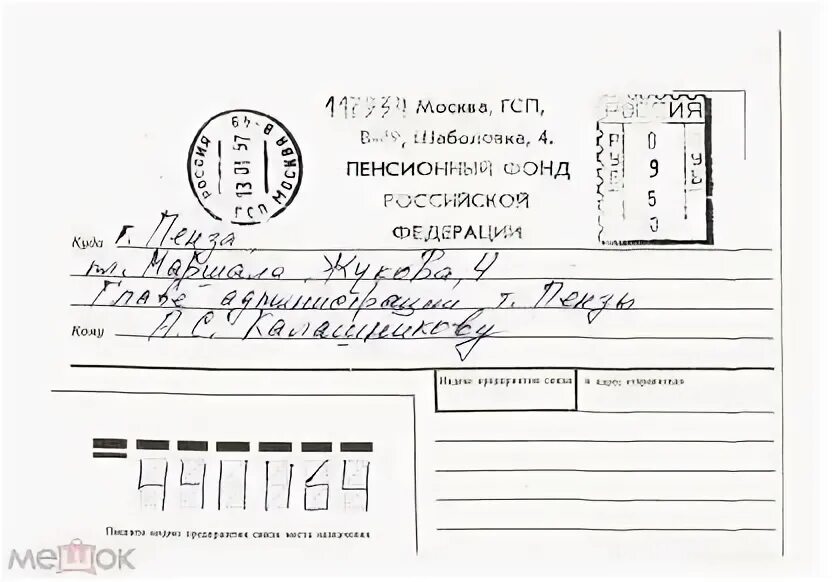 117934 Москва, ГСП,
В-49, Шаболовка, 4.
ПЕНСИОННЫЙ ФОНД
РОССИЙСКОЙ
ФЕДЕРАЦИИ
РОССИЯ
13 01 97
ГСП МОСКВА В-49
РОССИЯ
РУБ
0960
Куда г. Пенза,
пл. Маршала Жукова, 4
Главе администрации г. Пензы
Кому А.С. Калашникову
Индекс предприятия связи и адрес отправителя
441164
Пишите индекс предприятия связи места назначения
мешок